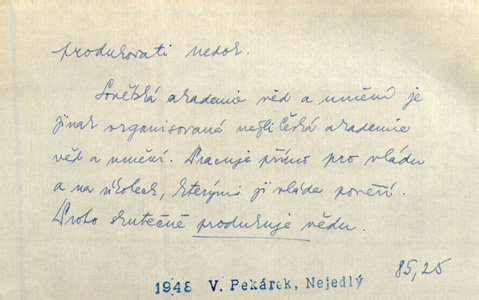 produkovati nedok.
Sovětská akademie věd a umění je
jinak organisovaná nežli Česká akademie
věd a umění. Pracuje přímo pro vládu
a na úkolech, kterými ji vláda pověří.
Proto skutečně produkuje vědu.
85,25
1948 V. Pekárek, Nejedlý